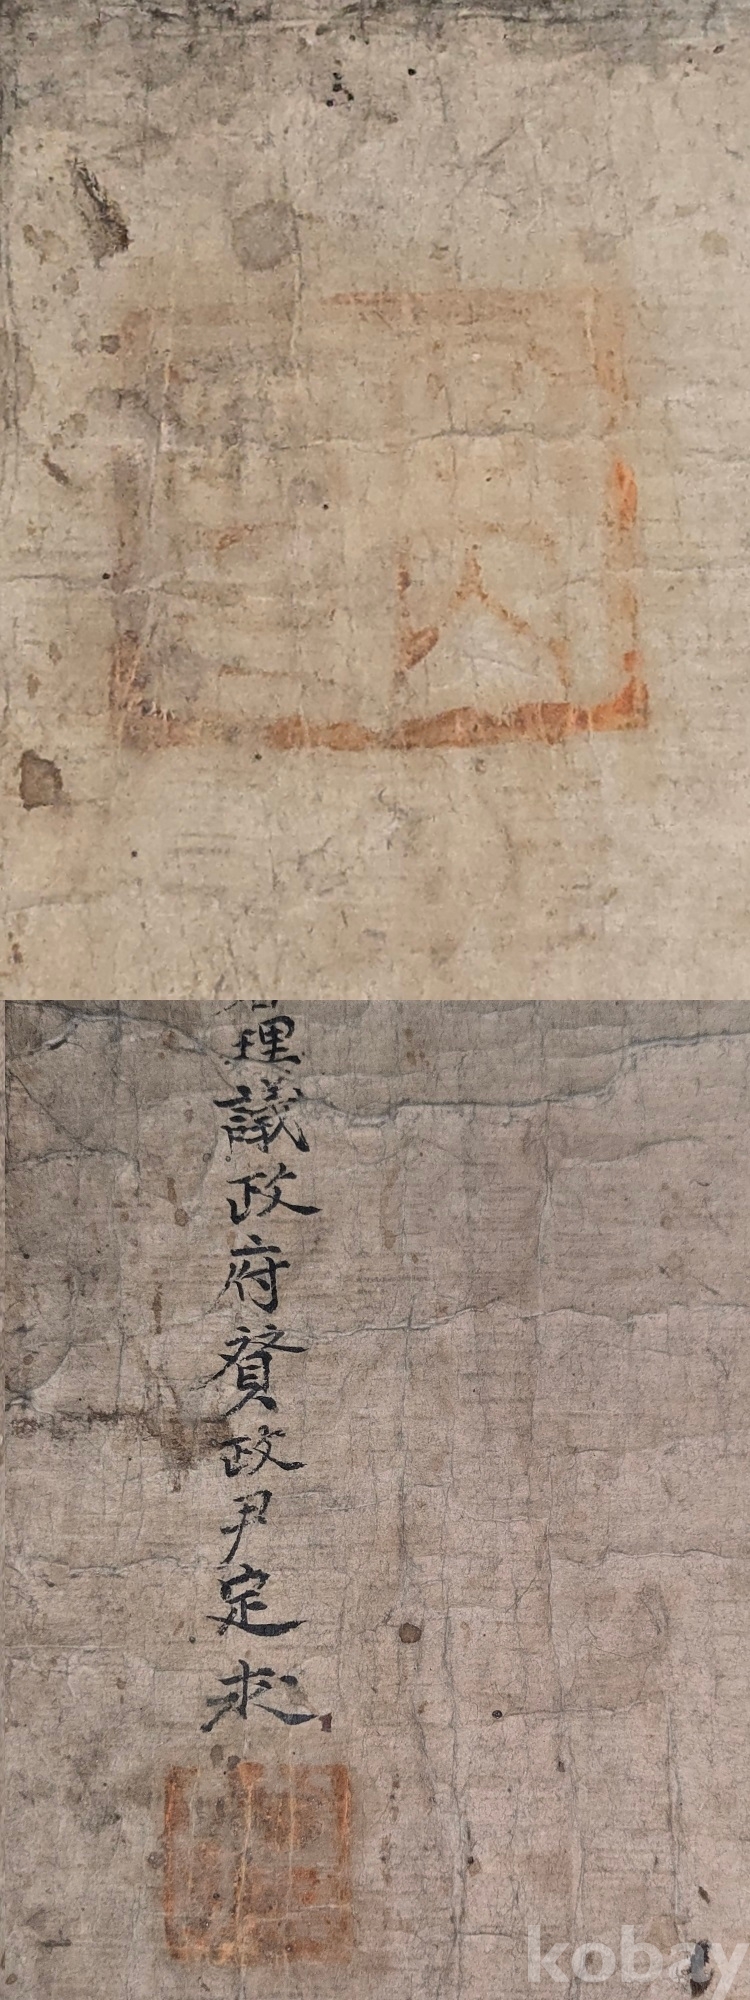 理議政府贊政尹定求
kobay